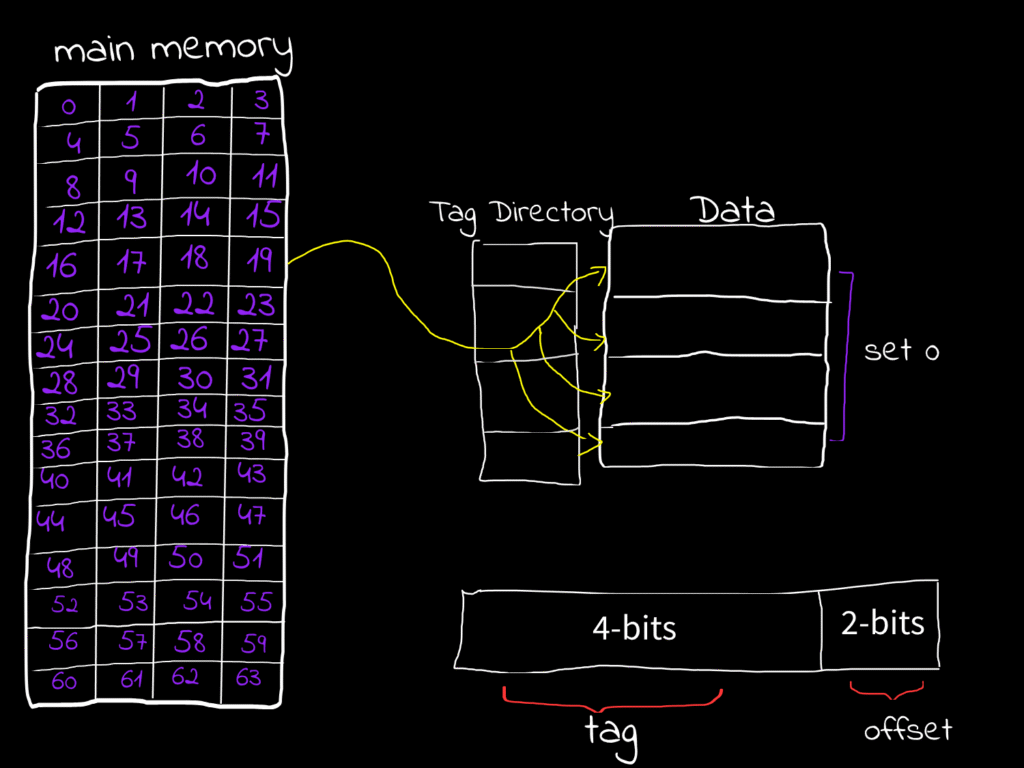 main memory
0 1 2 3
4 5 6 7
8 9 10 11
12 13 14 15
16 17 18 19
20 21 22 23
24 25 26 27
28 29 30 31
32 33 34 35
36 37 38 39
40 41 42 43
44 45 46 47
48 49 50 51
52 53 54 55
56 57 58 59
60 61 62 63
Tag Directory
Data
set 0
4-bits
2-bits
tag
offset